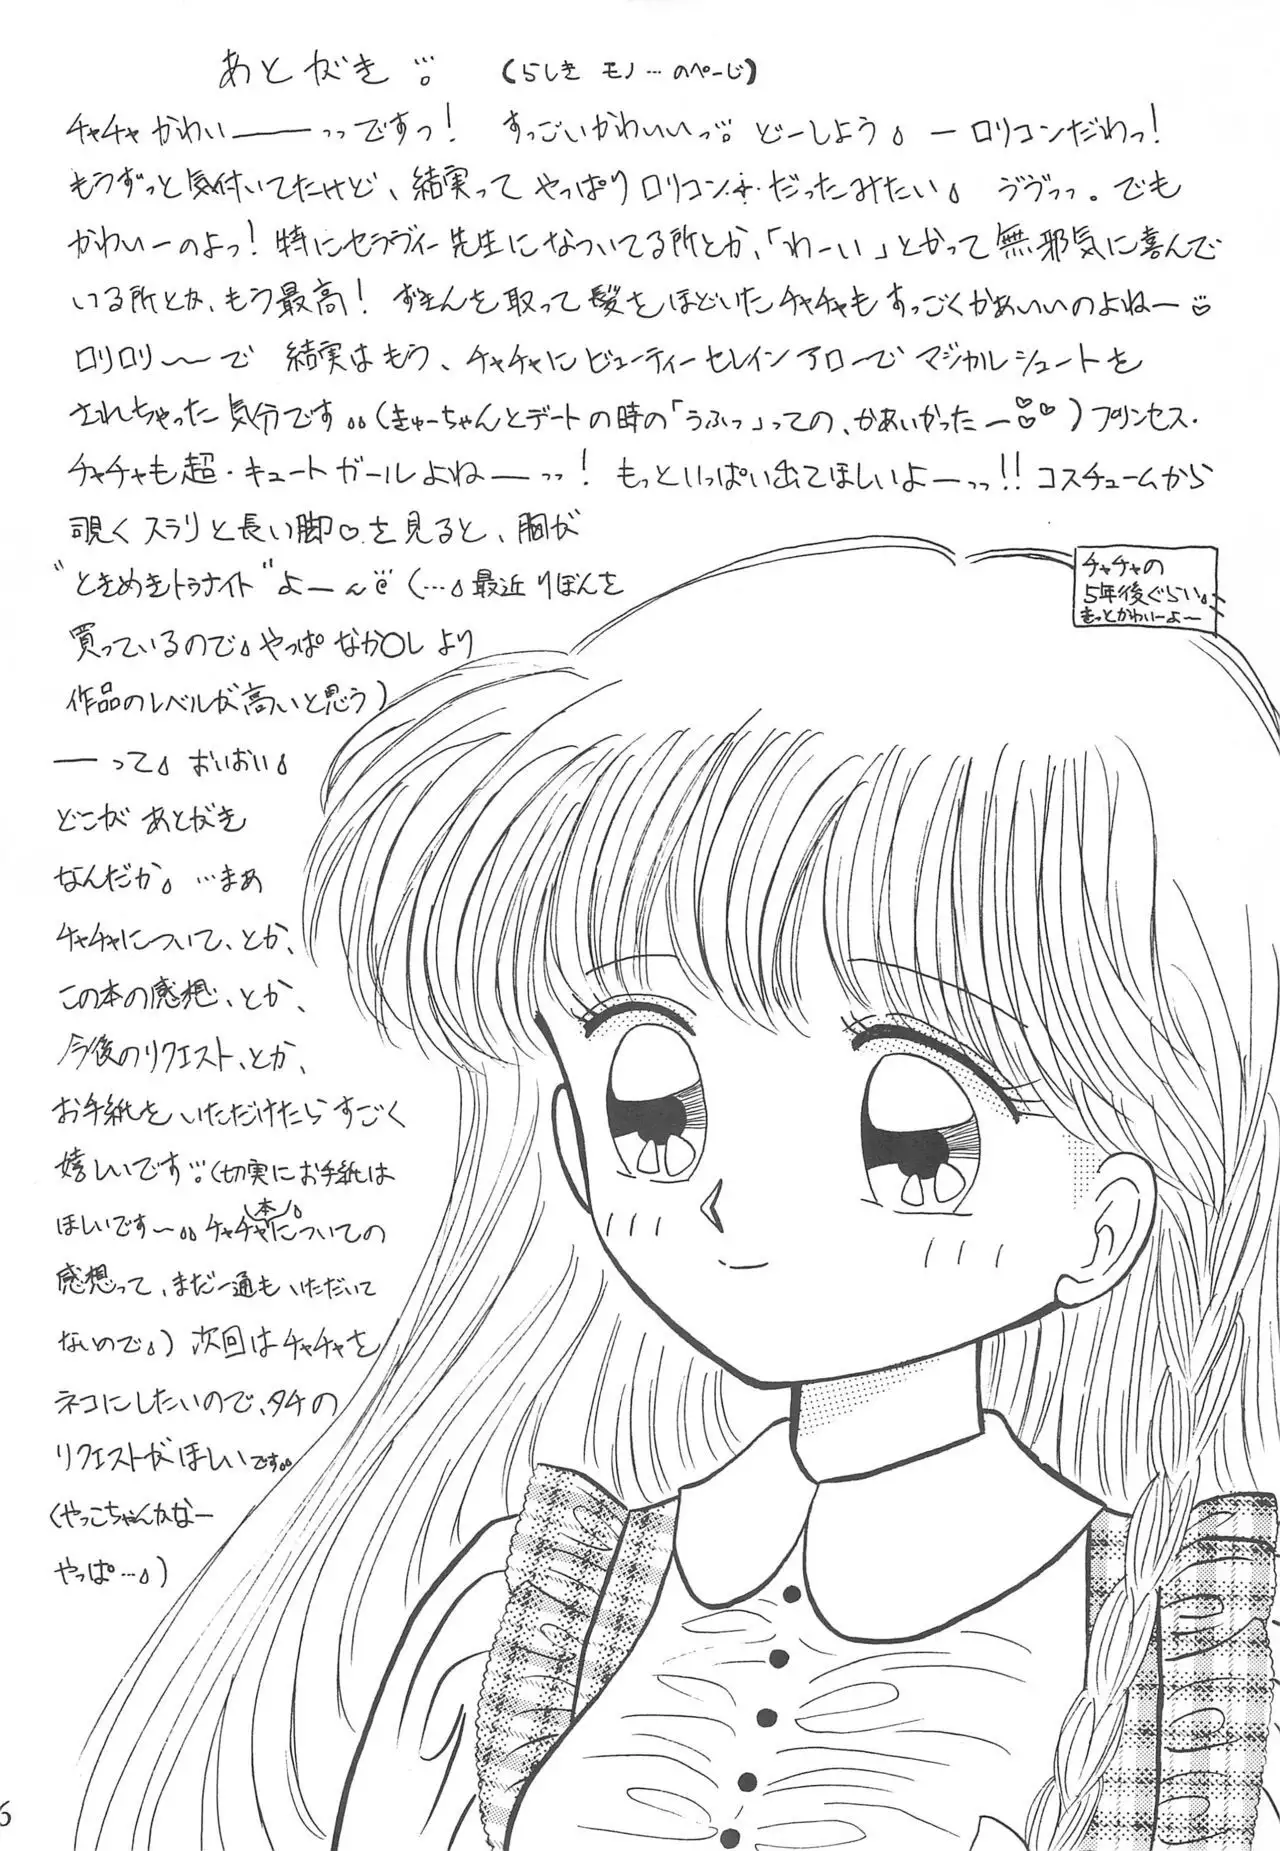 あとがき (らしき モノ…のページ)
チャチャかわい――――っっですっ! すっごいかわいいっ どーしよう ーロリコンだわっ!
もうずっと気付いてたけど、結実って やっぱりロリコン…だったみたい ヴヴっっ。でも
かわいーのよっ!特にセラヴィー先生になついてる所とか、「わーい」とかって無邪気に喜んで
いる所とか、もう最高! ずきんを取って髪をほどいたチャチャもすっごくかあいいのよねー
ロリロリ〜で 結実はもう、チャチャにビューティーセレインアローでマジカルシュートを
されちゃった気分です。。(きゅーちゃんとデートの時の「うふっ」っての、かあいかったー♡♡)プリンセス・
チャチャも超・キュートガールよねーっっ! もっといっぱい出てほしいよーっっ!!コスチュームから
覗くスラリと長い脚♡を見ると、胸が
"ときめきトゥナイト"よーん(…最近りぼんを
買っているので やっぱなか〇しより
作品のレベルが高いと思う)
ーって おいおい
どこがあとがき
なんだか …まあ
チャチャについて、とか、
この本の感想、とか、
今後のリクエスト、とか、
お手紙をいただけたらすごく
嬉しいです(切実にお手紙は
ほしいです〜。。チャチャ本についての
感想って、まだ一通もいただいて
ないので)次回はチャチャを
ネコにしたいので、タチの
リクエストがほしいです。。
(やっこちゃんかなー
やっぱ…)
チャチャの
5年後ぐらい
きっとかわいーよ〜
6